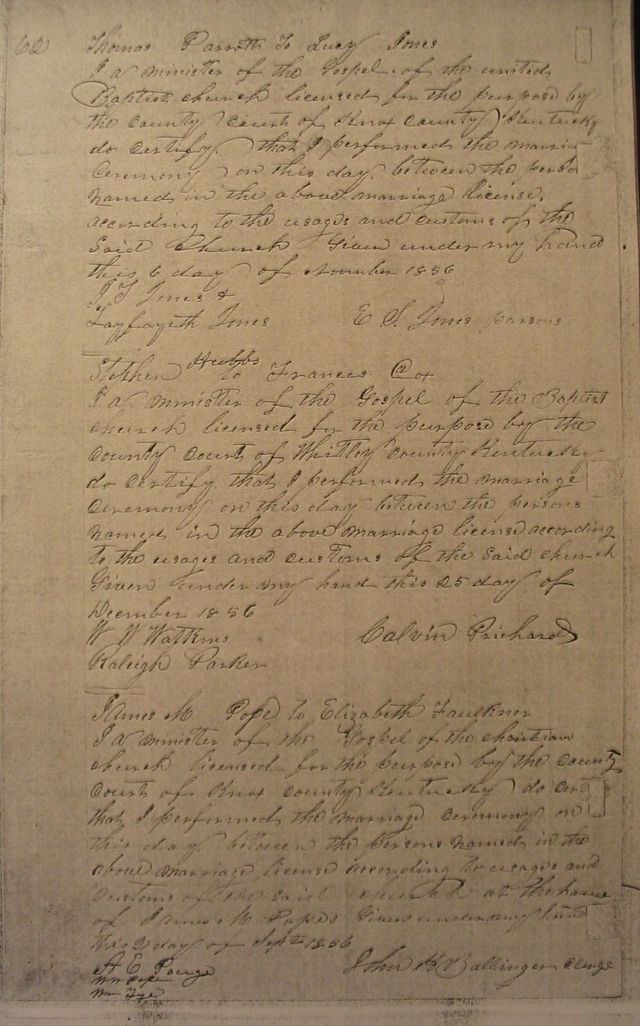 62
Thomas Parrott to Lucy Jones
I a minister of the Gospel of the united
Baptist church licensed for the purpose by
the county court of Knox county Kentucky
do certify that I performed the marriage
Ceremony on this day between the persons
named in the above marriage license,
according to the usages and customs of the
Said Church Given under my hand
this 6 day of November 1856
J Jones &
Layfayeth Jones E S Jones parsons
Stephen Hubbs to Frances Cox
I a minister of the Gospel of the Baptist
church licensed for the purpose by the
County court of Whitley County Kentucky
do certify that I performed the marriage
Ceremony on this day between the persons
named in the above marriage license according
to the usages and customs of the said church
Given under my hand this 25 day of
December 1856
W W Watkins Calvin Prichard
Raleigh Parker
James M Pope to Elizabeth Faulkner
I a minister of the Gospel of the christian
church licensed for the purpose by the county
court of Knox county Kentucky do cert
that I performed the marriage ceremony on
this day between the persons named in the
above marriage license according to usages and
Customs of the said church at the house
of James M Popes Given under my hand
this 2 day of Sept 1856
A E Pouge John H Ballinger Clerge
Wm Pope
Wm Tye